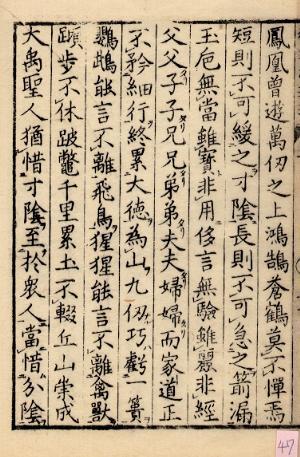 鳳凰曾遊萬仞之上鴻鵠蒼鶴莫不憚焉
短則不可緩之寸陰長則不可急之箭漏
玉巵無當雖寶非用侈言無驗雖麗非經
父父子子兄兄弟弟夫夫婦婦而家道正
不矜細行終累大德為山九仞巧虧一簣
鸚鵡能言不離飛鳥猩猩能言不離禽獸
蹞步不休跛鼈千里累土不輟丘山崇成
大禹聖人猶惜寸陰至於衆人當惜分陰
47